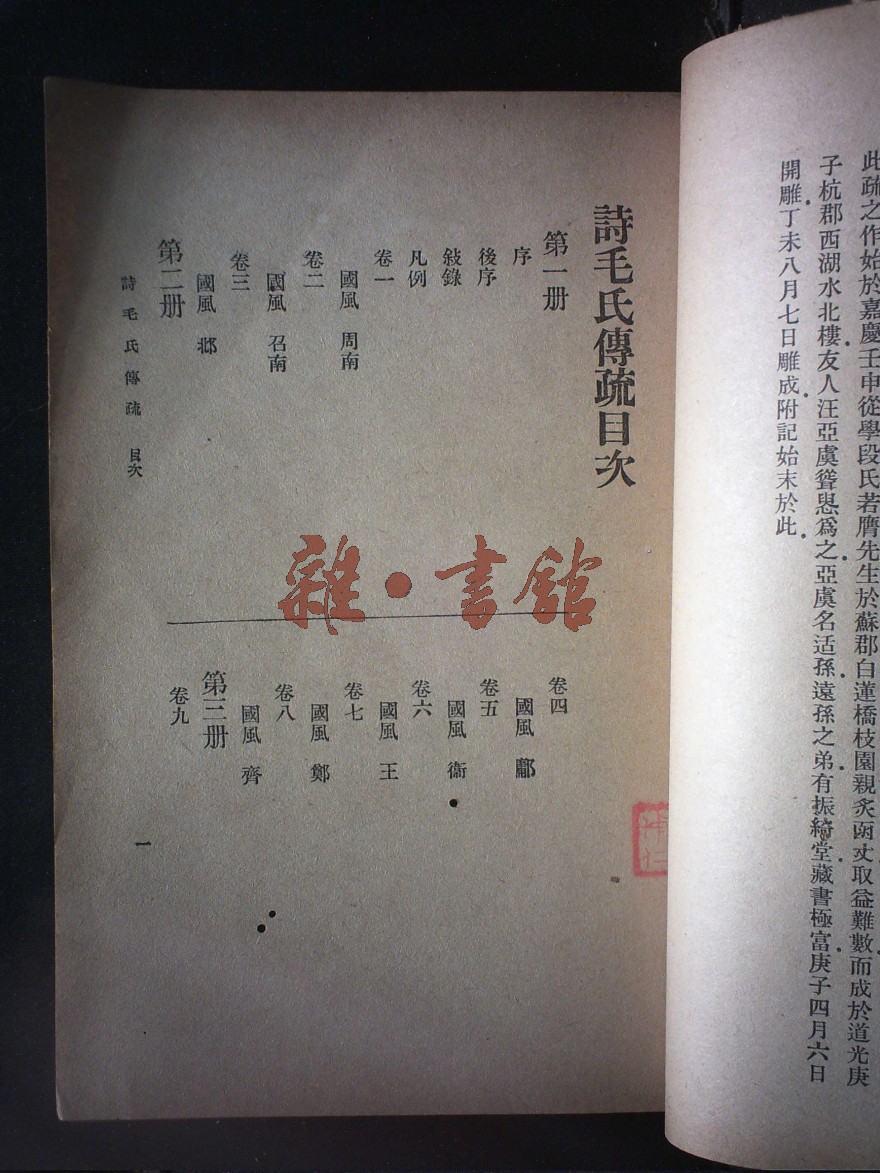 此疏之作始於嘉慶壬申從學段氏若膺先生於蘇郡白蓮橋枝園親炙函丈取益難數而成於道光庚
子杭郡西湖水北樓友人汪亞虞聳恿爲之亞虞名适孫遠孫之弟有振綺堂藏書極富庚子四月六日
開雕丁未八月七日雕成附記始末於此
詩毛氏傳疏目次
第一册
序
後序
敍錄
凡例
卷一
國風 周南
卷二
國風 召南
卷三
國風 邶
第二册
卷四
國風 鄘
卷五
國風 衞
卷六
國風 王
卷七
國風 鄭
卷八
國風 齊
第三册
卷九
詩毛氏傳疏 目次
一
雜·書館